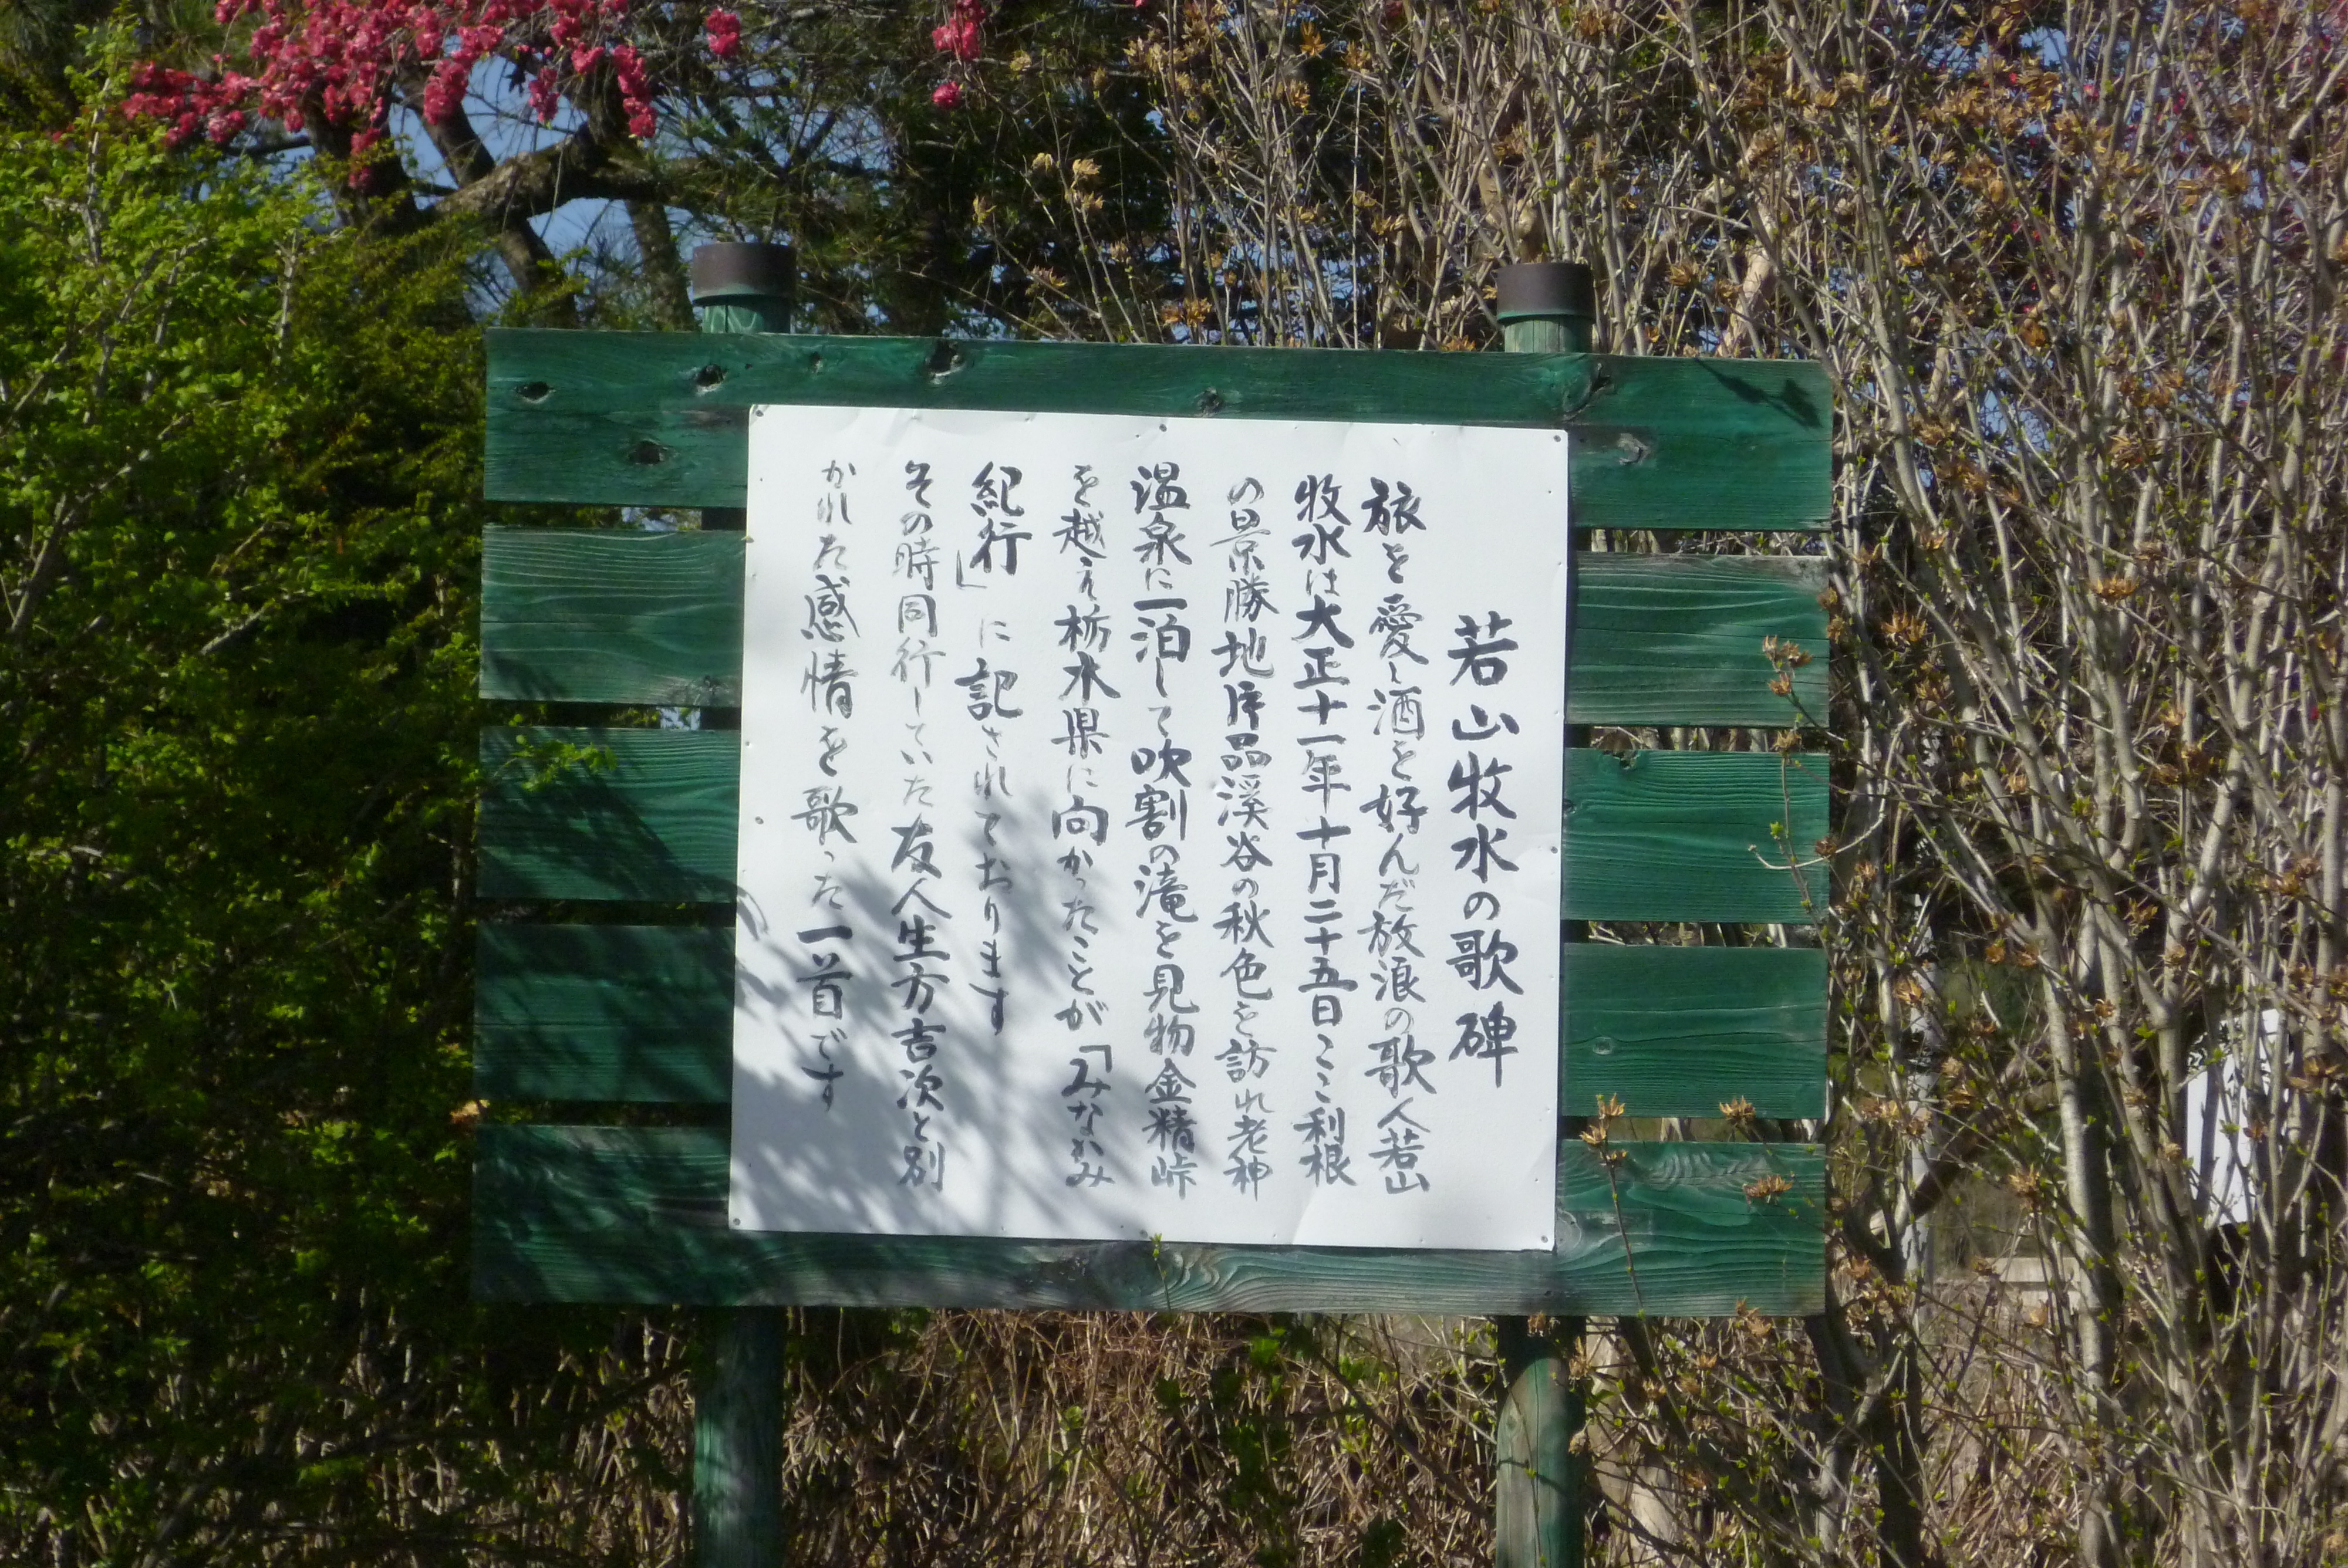 若山牧水の歌碑
旅を愛し酒を好んだ放浪の歌人若山
牧水は大正十一年十月二十五日ここ利根
の景勝地片品渓谷の秋色を訪れ老神
温泉に一泊して吹割の滝を見物金精峠
を越え栃木県に向かったことが「みなかみ
紀行」に記されております
その時同行していた友人生方吉次と別
かれた感情を歌った一首です